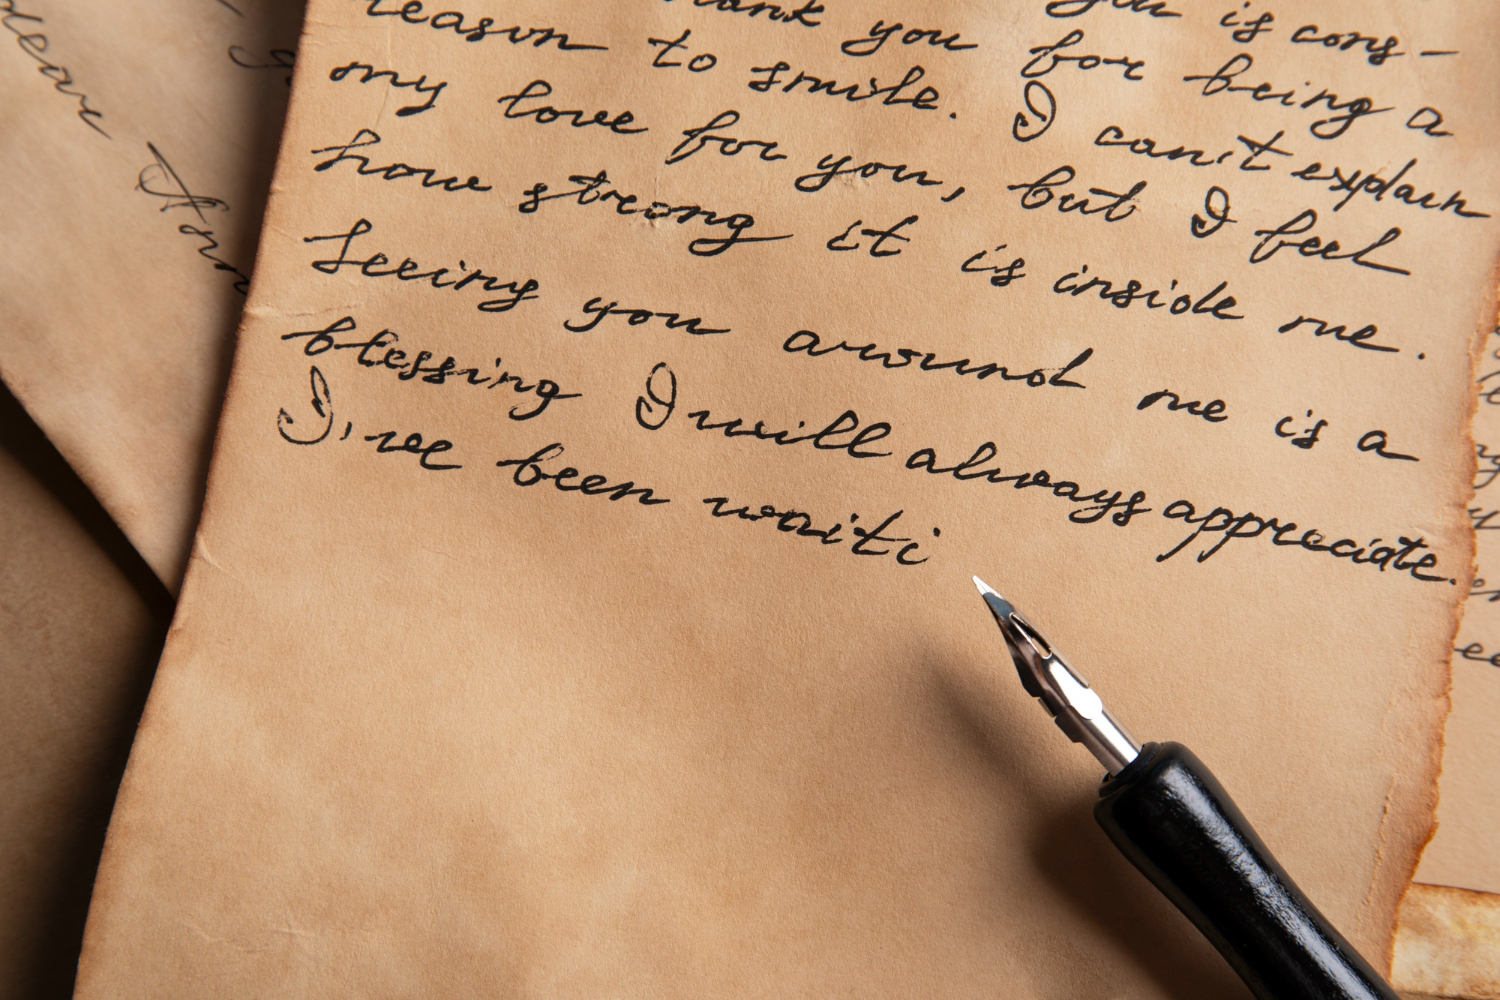 you is cons-
hank you for being a
reason to smile. I can't explain
my love for you, but I feel
how strong it is inside me.
Seeing you around me is a
blessing I will always appreciate.
I've been waiti
dear Ann